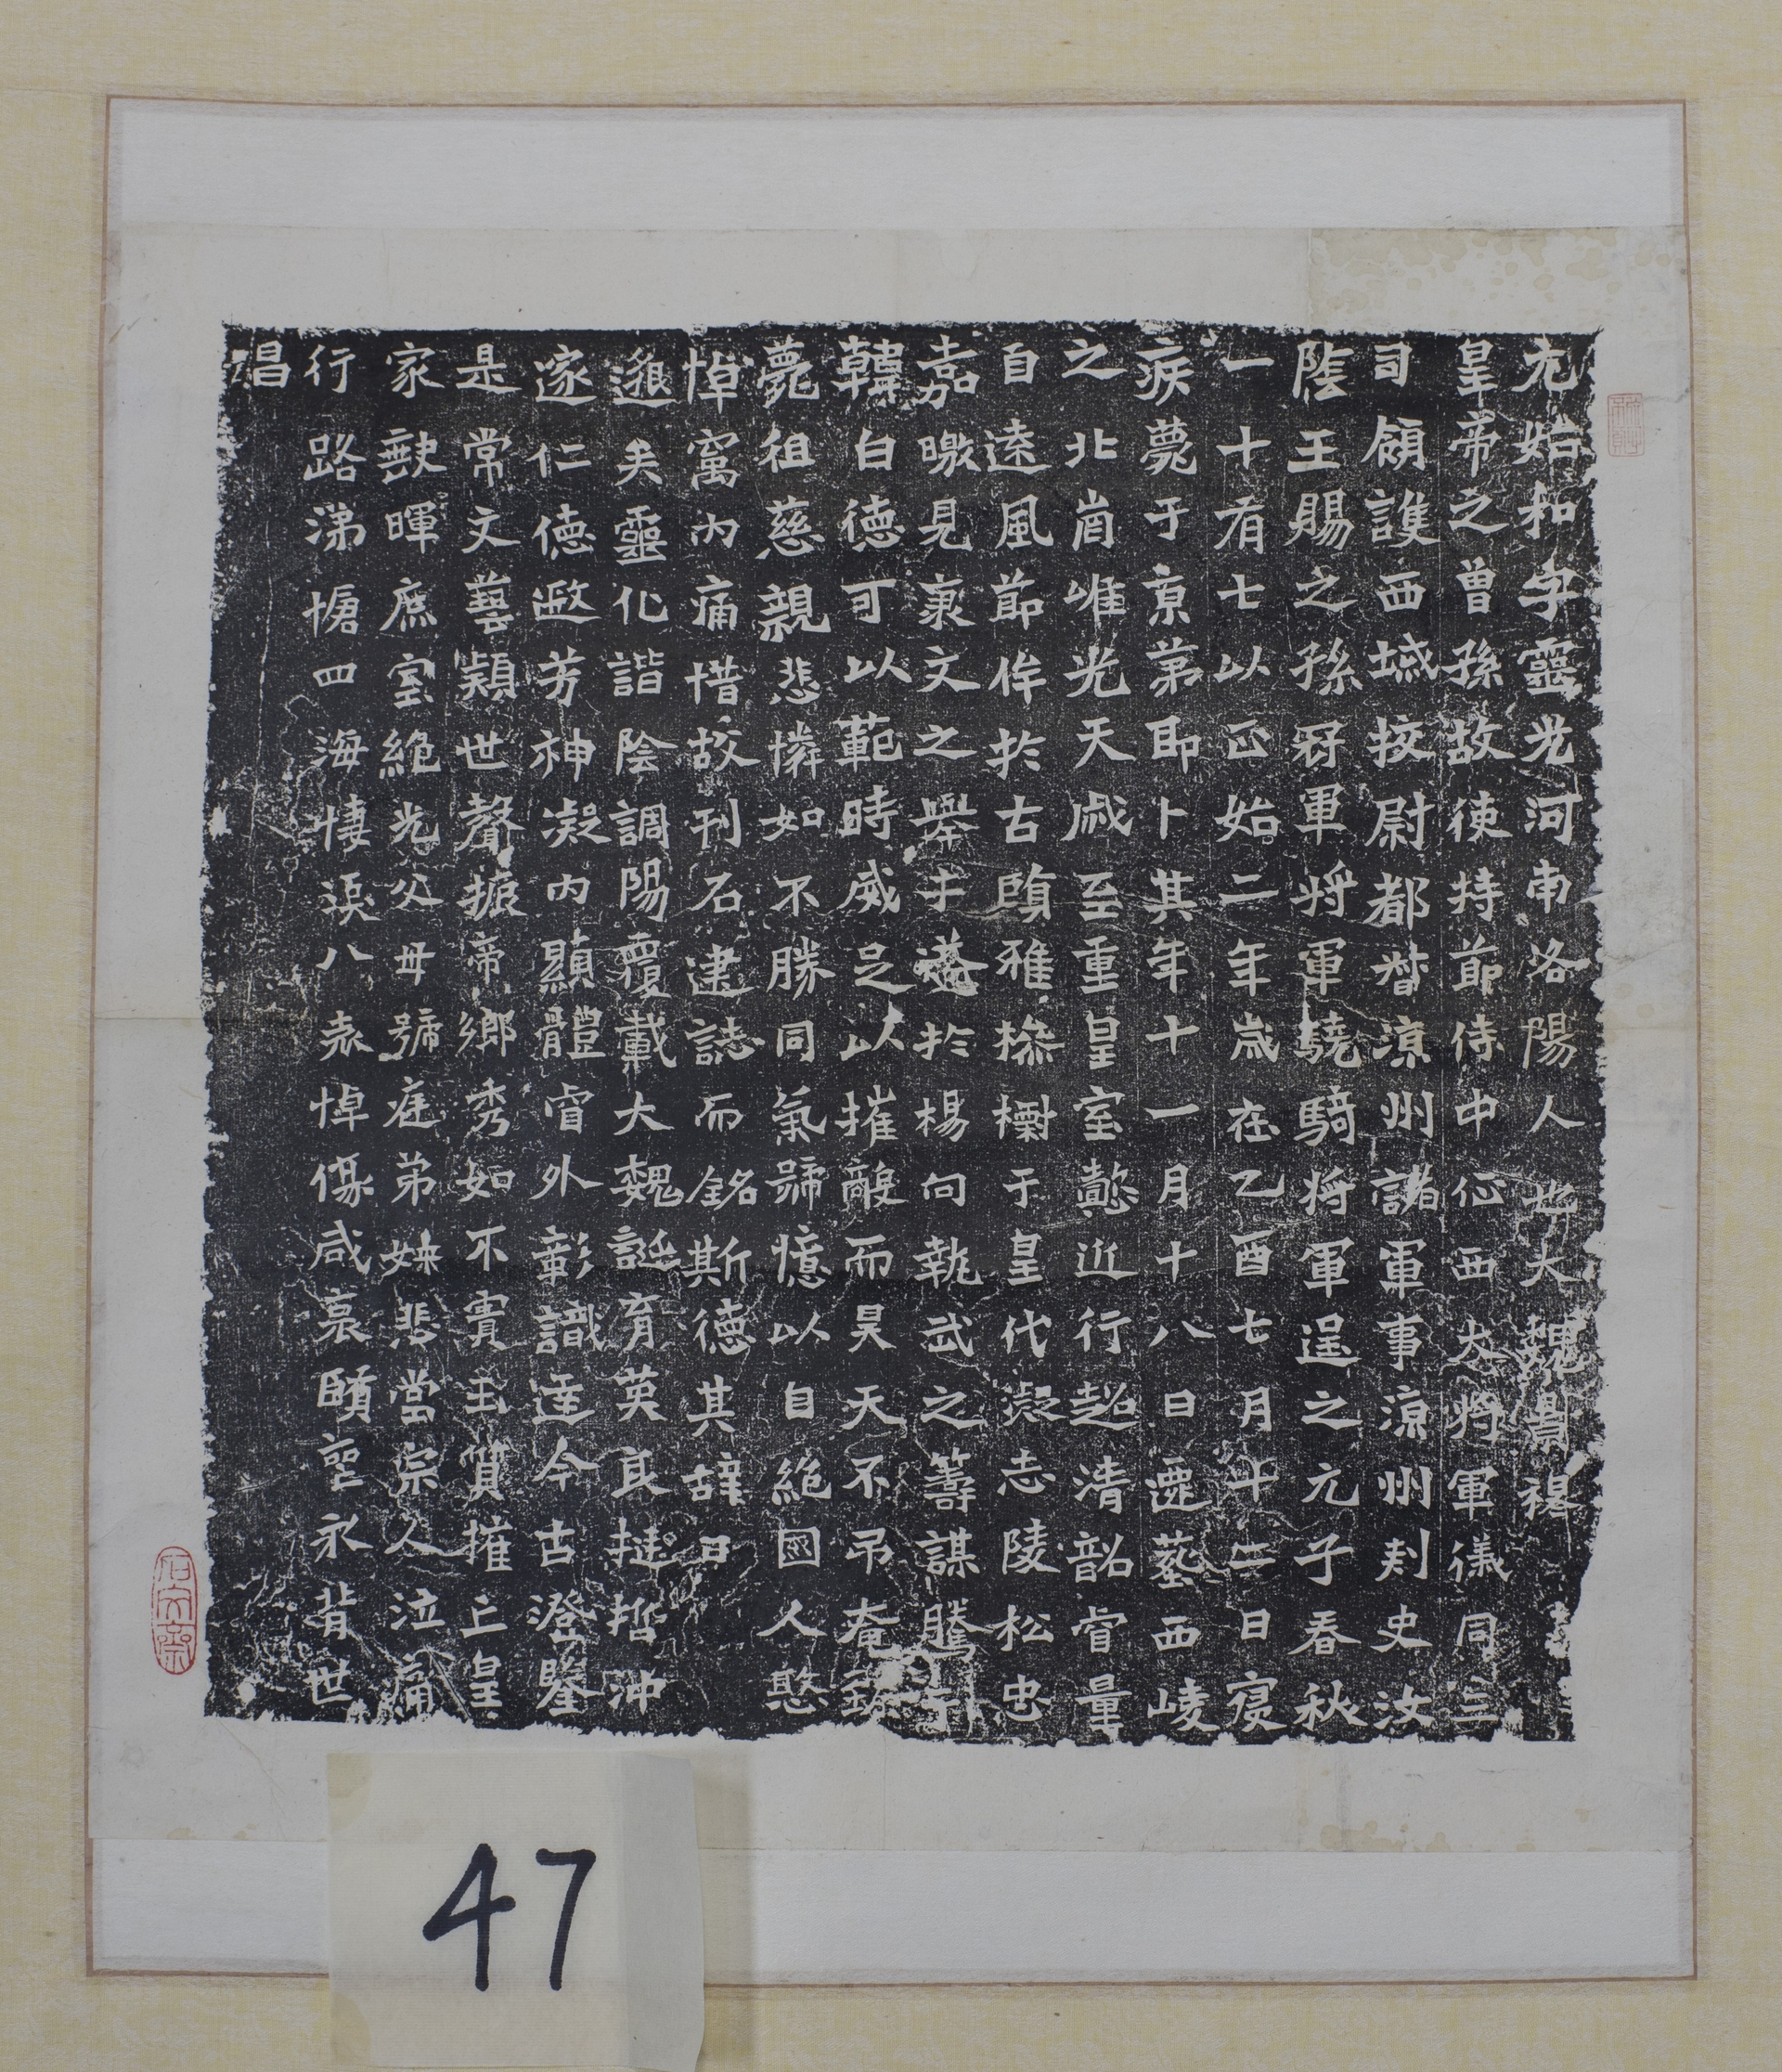 元始和字靈光河南洛陽人也大魏景穆
皇帝之曾孫故使持節侍中征西大將軍儀同三
司領護西域挍尉都督涼州諸軍事涼州刾史汝
陰王賜之孫冠軍將軍驍騎將軍逞之元子春秋
一十有七以正始二年歲在乙酉七月十二日寑
疾薨于京第即卜其年十一月十八日遷塟西崚
之北崗唯光天慼至重皇室懿近行超清韶睿量
自遠風節侔於古賾雅操櫛于皇代凝志陵松忠
嘉暾見稟文之舉才遊於楊向執武之籌謀騰于
韓白德可以範時威足以摧敵而昊天不弔奄
薨祖慈親悲憐如不勝同氣號憶以自絶國人慜
悼寓内痛惜故刊石建誌而銘斯德其辞曰
邈矣靈化諧陰調陽覆載大魏誕育英良挺哲沖
邃仁德遊芳神凝内顯體睿外彰識達今古澄鑒
是常文藝穎世聲振帝鄉秀如不實玉質摧亡皇
家歇暉庶室絶光父母號庭弟妹悲當宗人泣痛
行路涕愴四海悽淚八表悼傷咸哀賾聖永背世
昌
石安齋
47